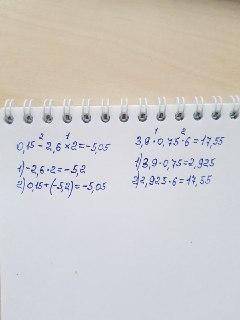 2 1
0,15 - 2,6 × 2 = -5,05
1) -2,6 · 2 = -5,2
2) 0,15 + (-5,2) = -5,05
1 2
3,9 · 0,75 · 6 = 17,55
1) 3,9 · 0,75 = 2,925
2) 2,925 · 6 = 17,55